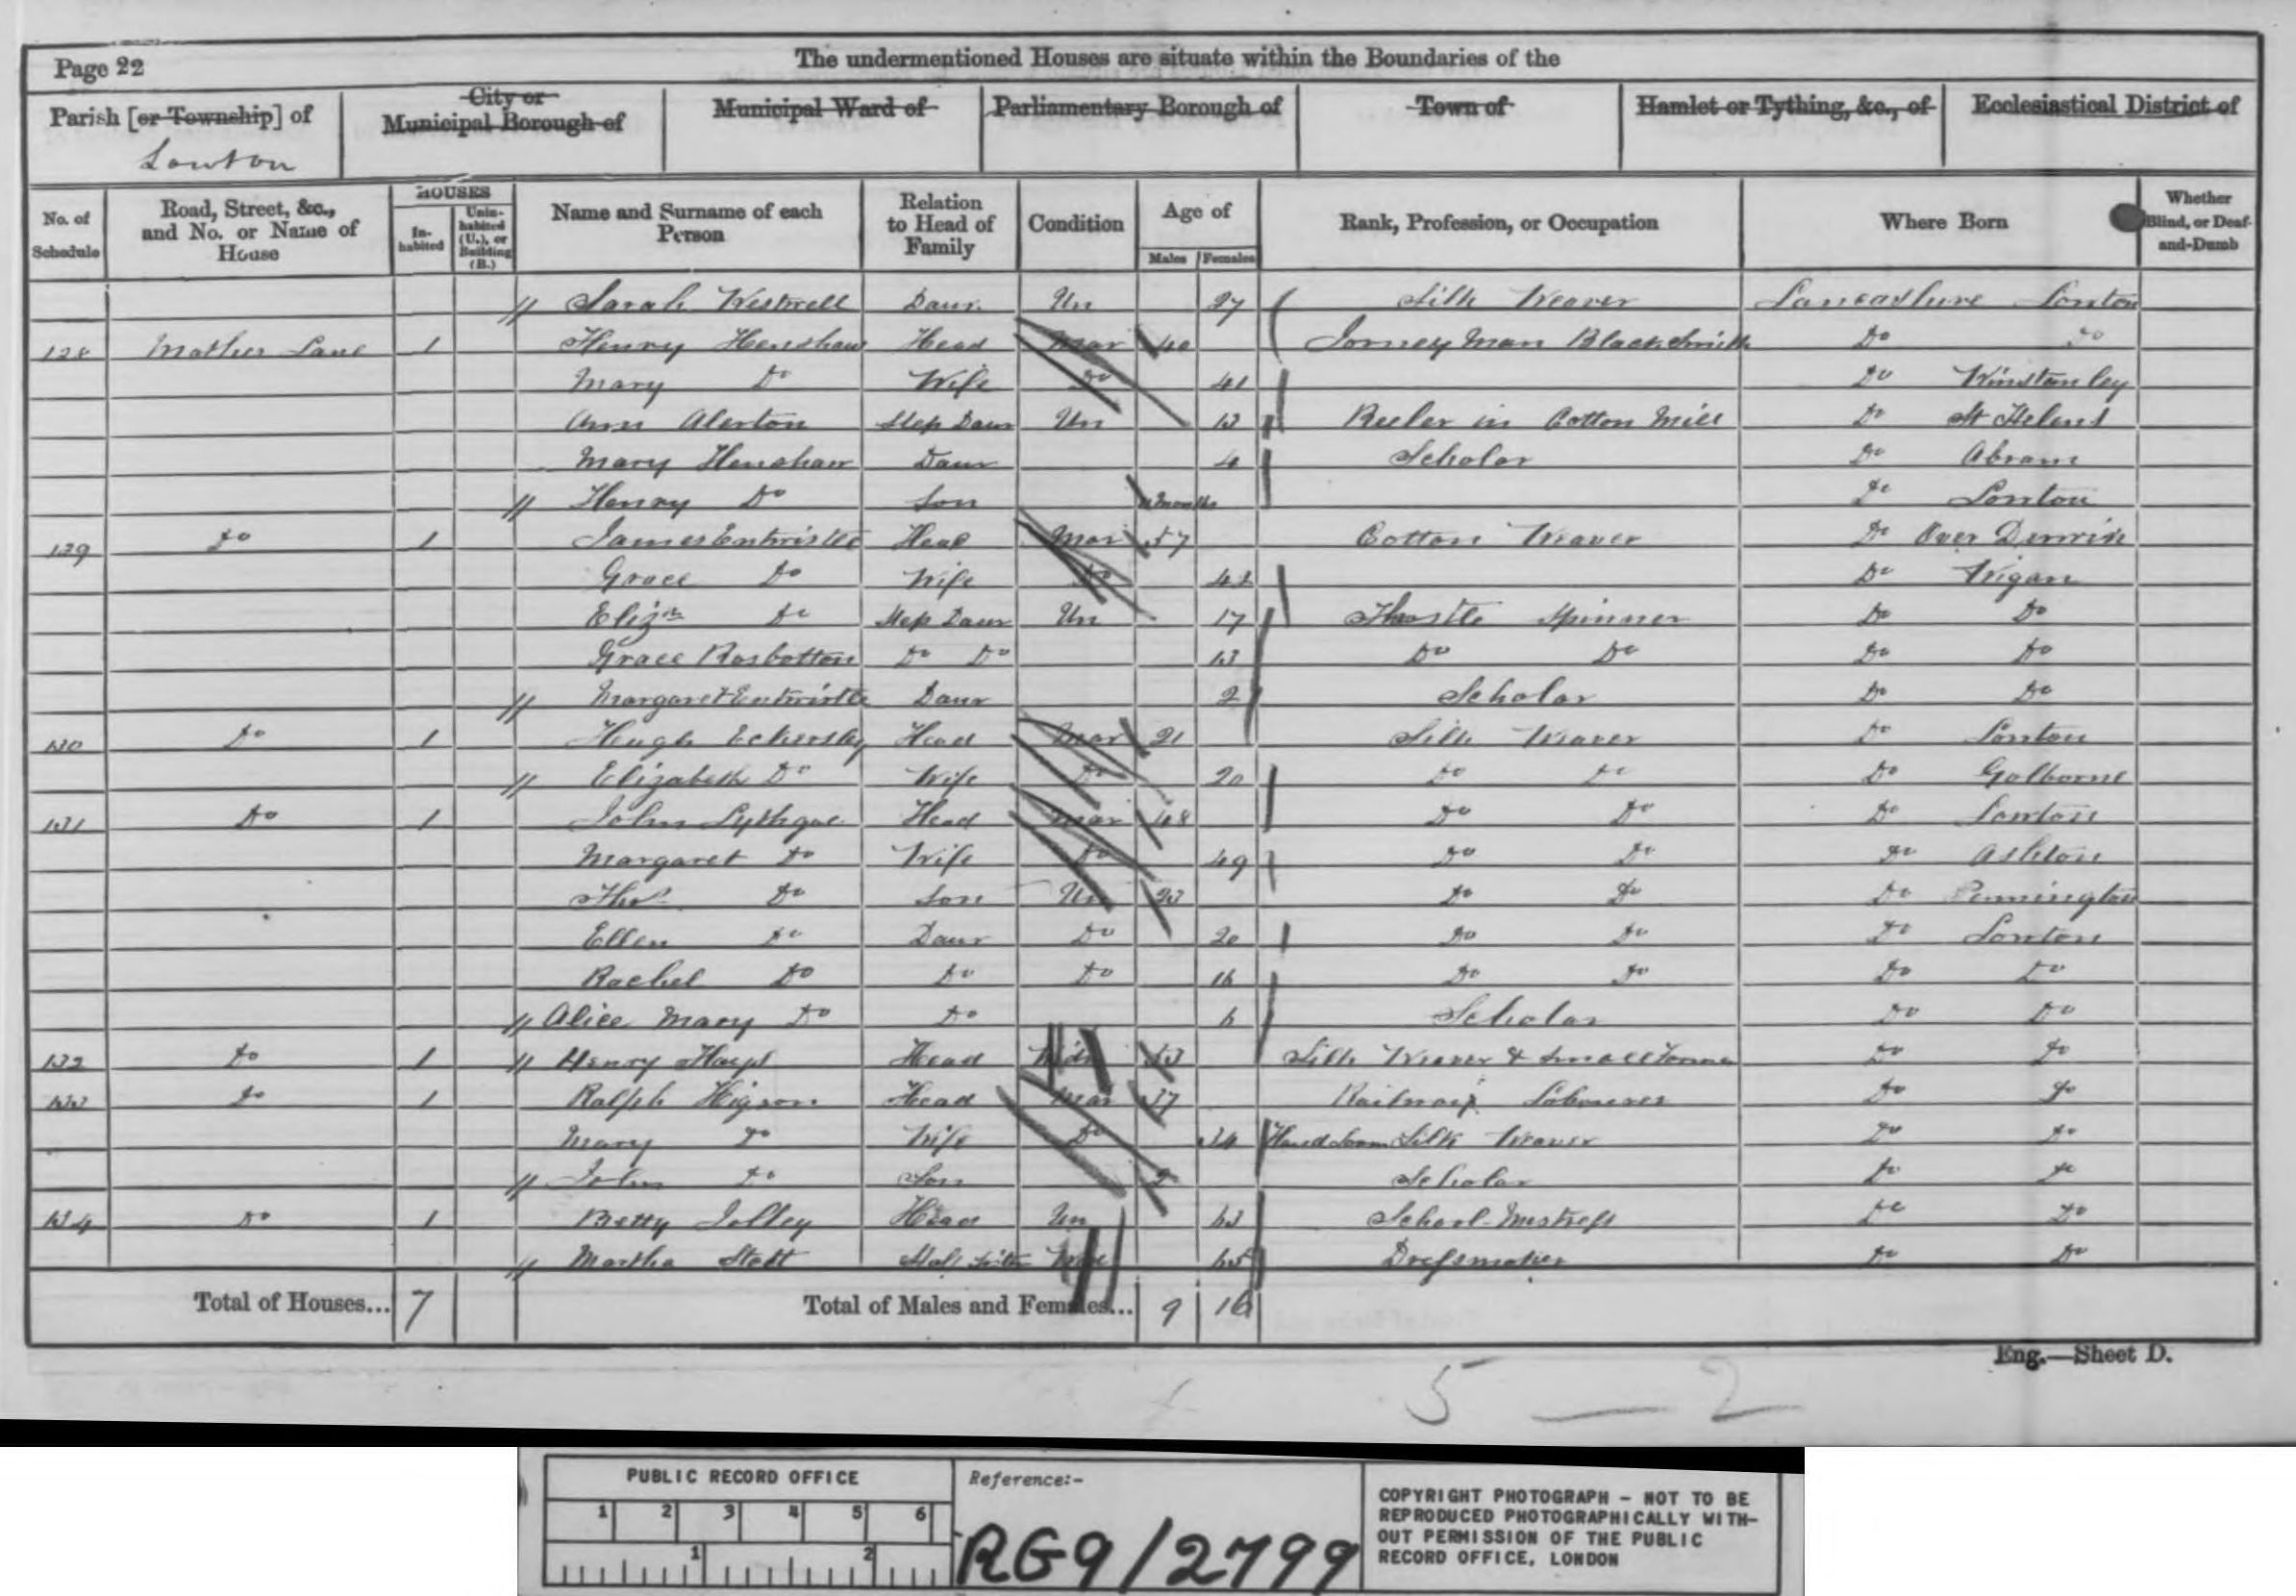 Page 22
The undermentioned Houses are situate within the Boundaries of the
Parish [or Township] of
City or Municipal Borough of
Municipal Ward of
Parliamentary Borough of
Town of
Hamlet or Tything, &c., of
Ecclesiastical District of
Lowton
No. of Schedule
Road, Street, &c., and No. or Name of House
HOUSES
In-habited
Unin-habited (U.), or Building (B.)
Name and Surname of each Person
Relation to Head of Family
Condition
Age of
Males
Females
Rank, Profession, or Occupation
Where Born
Whether Blind, or Deaf-and-Dumb
Sarah Westwell Daur. Un 27 Silk Weaver Lancashire Lowton
128 Mather Lane 1 Henry Henshaw Head Mar 40 Jorney Man Blacksmith Do Do
Mary Do Wife Do 41 Do Winstanley
Ann Alerton Step Daur Un 13 Reeler in Cotton Mill Do St Helens
Mary Henshaw Daur 4 Scholar Do Abram
Henry Do Son months Do Lowton
129 Do 1 James Entwistle Head Mar 57 Cotton Weaver Do Over Derwin
Grace Do Wife Do Do Wigan
Elizth Do Step Daur Un 17 Thostle Spinner Do Do
Grace Rosbotton Do Do 13 Do Do Do Do
Margaret Entwistle Daur 2 Scholar Do Do
130 Do 1 Hugh Eckersley Head Mar 21 Silk Weaver Do Lowton
Elizabeth Do Wife Do 20 Do Do Do Golborne
131 Do 1 John Lythgoe Head Mar 48 Do Do Do Lowton
Margaret Do Wife Do 49 Do Do Do Ashton
Thos Do Son Un 23 Do Do Do Pennington
Ellen Do Daur Do 20 Do Do Do Lowton
Rachel Do Do Do 16 Do Do Do Do
Alice Mary Do Do 6 Scholar Do Do
132 Do 1 Henry Hayes Head Widr 53 Silk Weaver & Small Farmer Do Do
133 Do 1 Ralph Higson Head Mar 37 Railway Labourer Do Do
Mary Do Wife Do 34 Hand Loom Silk Weaver Do Do
John Do Son 2 Scholar Do Do
134 Do 1 Betty Jolley Head Un 63 School Mistress Do Do
Martha Stott Half Sister 65 Dressmaker Do Do
Total of Houses... 7 Total of Males and Females... 9 16
Eng.—Sheet D.
5 — 2
PUBLIC RECORD OFFICE
1 2 3 4 5 6
1 2
Reference:-
RG9/2799
COPYRIGHT PHOTOGRAPH - NOT TO BE
REPRODUCED PHOTOGRAPHICALLY WITH-
OUT PERMISSION OF THE PUBLIC
RECORD OFFICE, LONDON